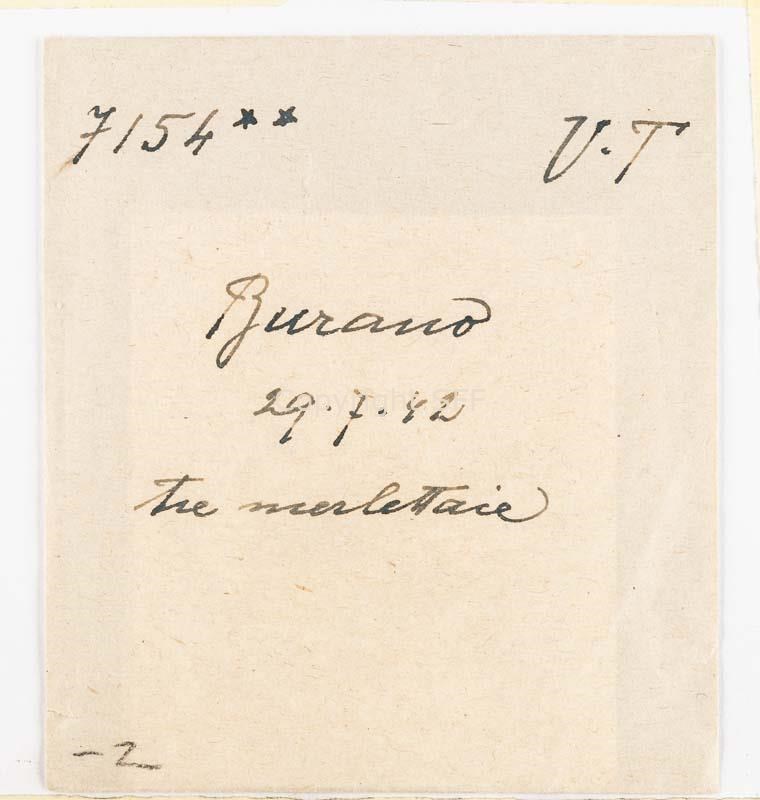 7154** V.T
Burano
29.7.42
tre merlettaie
-2